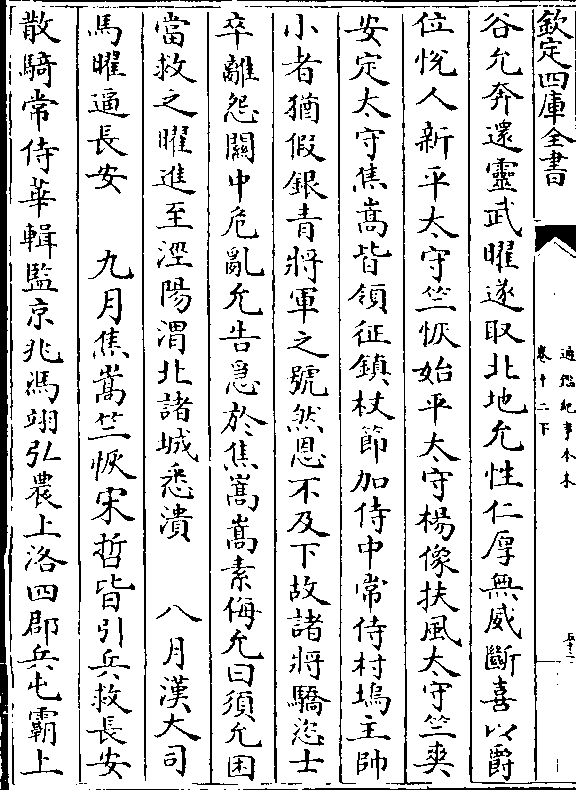 欽定四庫全書
通鑑紀事本末
卷十二下
谷允奔還靈武曜遂取北地允性仁厚無威斷喜以爵
位悅人新平太守竺恢始平太守楊像扶風太守竺爽
安定太守焦嵩皆領征鎮杖節加侍中常侍村塢主帥
小者猶假銀青將軍之號然恩不及下故諸將驕恣士
卒離怨關中危亂允告急於焦嵩嵩素侮允曰須允困
當救之曜進至涇陽渭北諸城悉潰 八月漢大司
馬曜逼長安 九月焦嵩竺恢宋哲皆引兵救長安
散騎常侍華輯監京兆馮翊弘農上洛四郡兵屯霸上